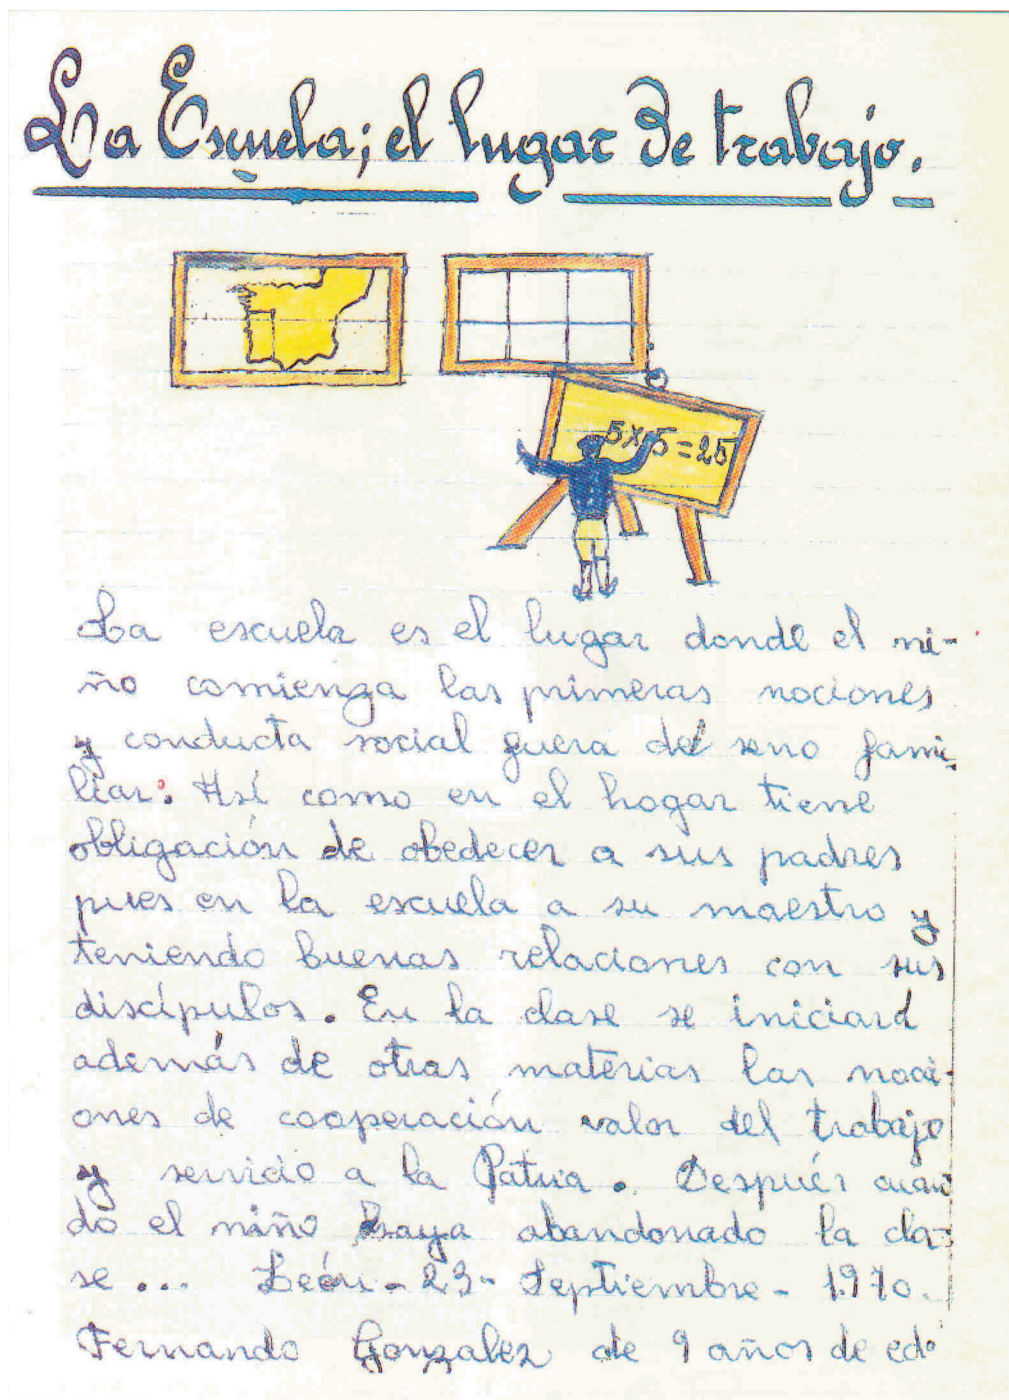 La Escuela; el lugar de trabajo.
5x5=25
La escuela es el lugar donde el ni-
ño comienza las primeras nociones
y conducta social fuera del seno fami-
liar. Así como en el hogar tiene
obligación de obedecer a sus padres
pues en la escuela a su maestro y
teniendo buenas relaciones con sus
discípulos. En la clase se iniciará
además de otras materias las noci-
ones de cooperación valor del trabajo
y servicio a la Patria. Después cuan
do el niño haya abandonado la cla-
se... León-23-Septiembre-1970.
Fernando Gonzalez de 9 años de eda